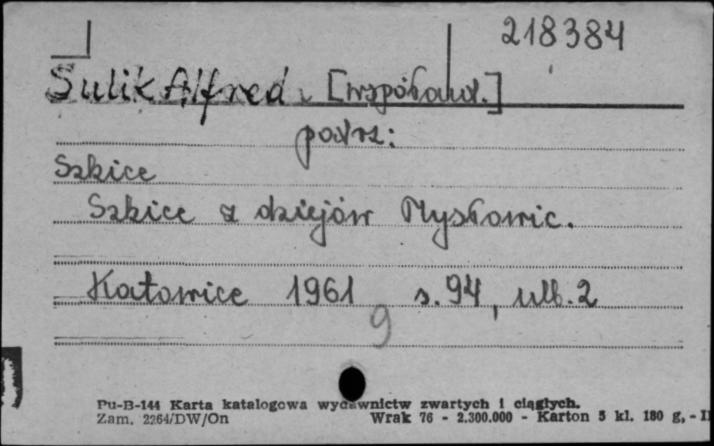 218384
Sulik Alfred, [współaut.]
patrz:
Szkice
Szkice z dziejów Mysłowic.
Katowice 1961 s. 94, ulb. 2
9
Pu-B-144 Karta katalogowa wydawnictw zwartych i ciągłych.
Zam. 2264/DW/On Wrak 76 - 2.300.000 - Karton 5 kl. 180 g. - II